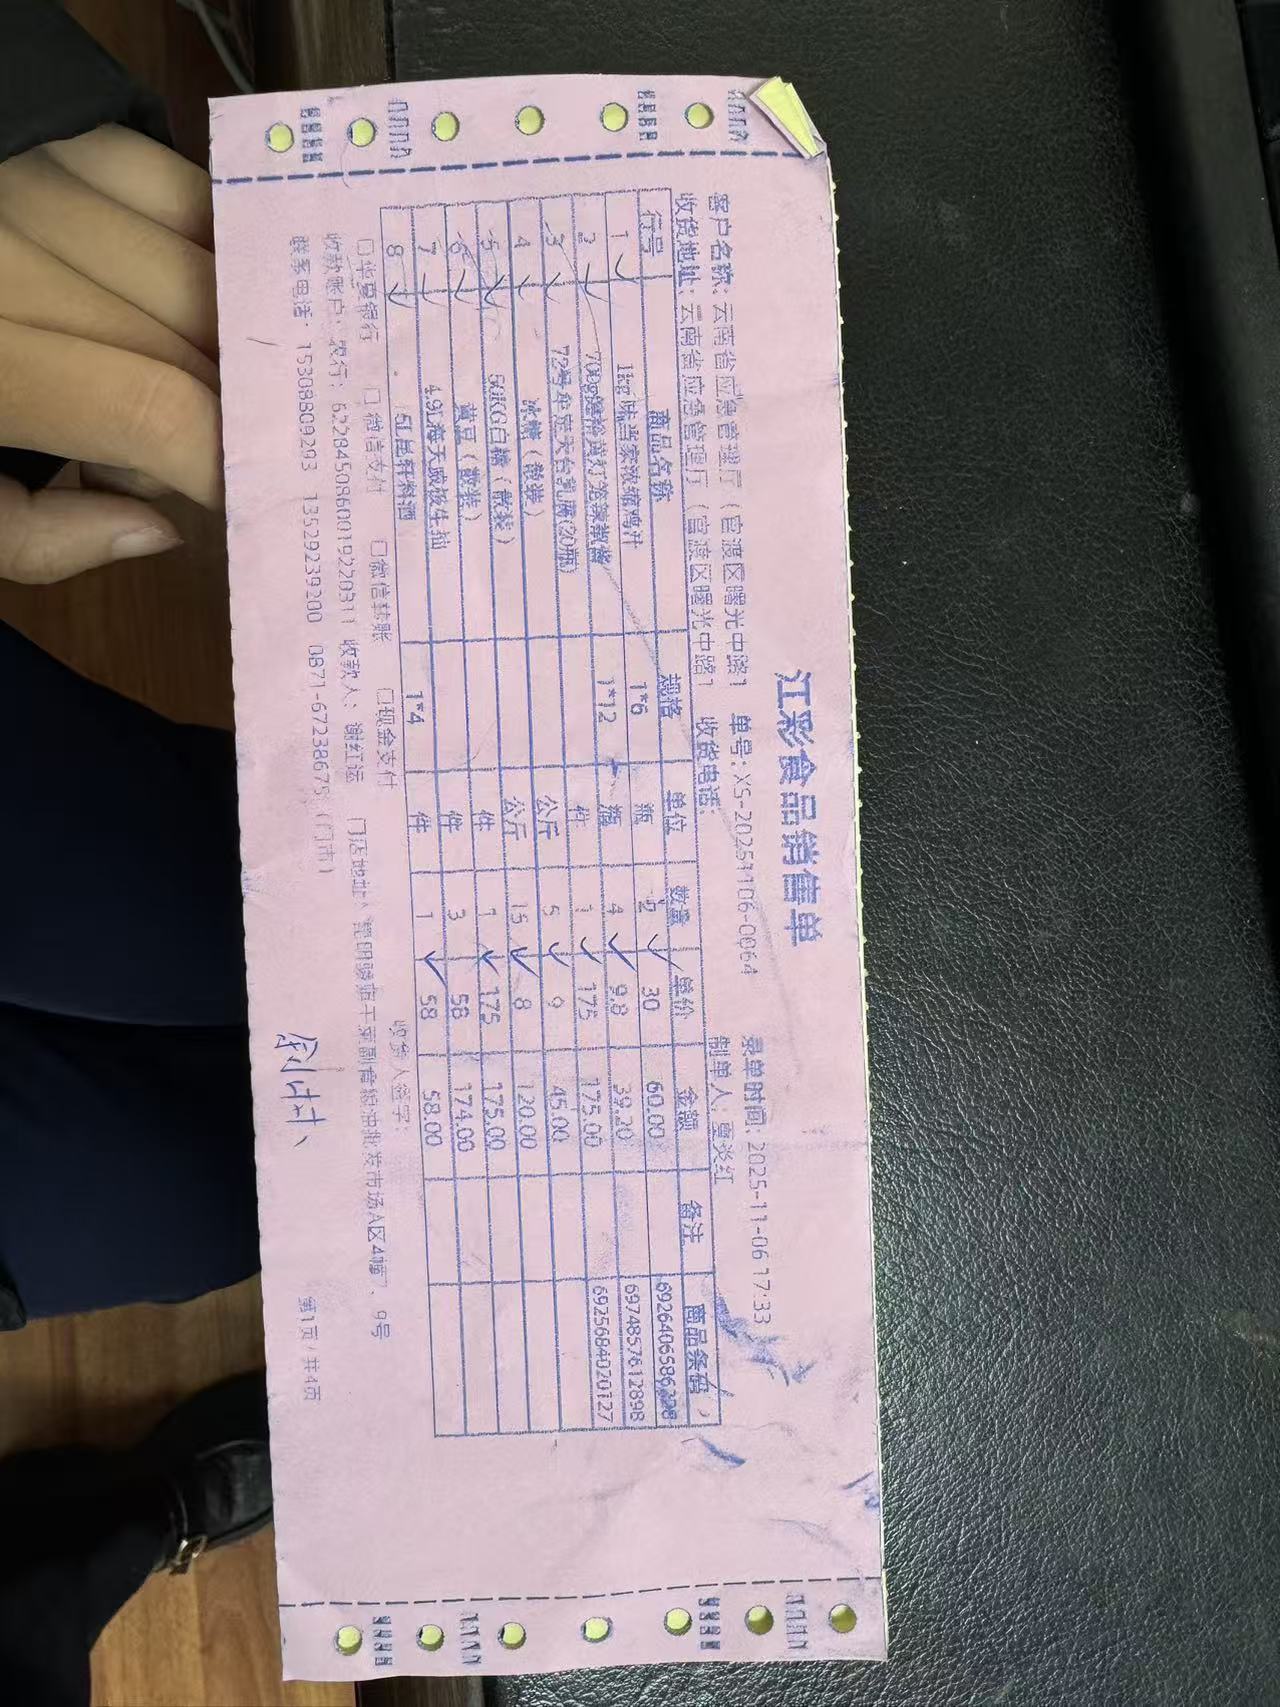 江彩食品销售单
客户名称: 云南省应急管理厅（官渡区曙光中路1 单号: XS-20251106-0064 录单时间: 2025-11-06 17:33
收货地址: 云南省应急管理厅（官渡区曙光中路1 收货电话: 制单人: 夏炎红
行号 商品名称 规格 单位 数量 单价 金额 备注 商品条码
1 1kg味当家浓缩鸡汁 1*6 瓶 2 30 60.00 6926406586328
2 700g 灯笼辣椒酱 1*12 瓶 4 9.8 39.20 6974857612898
3 72号牟定天台乳腐(20瓶) 件 1 175 175.00 6925684020127
4 冰糖（散装） 公斤 5 9 45.00
5 50KG白糖（散装） 公斤 15 8 120.00
6 黄豆（散装） 件 1 175 175.00
7 4.9L海天威极生抽 件 3 58 174.00
8 5L 料酒 1*4 件 1 58 58.00
□华夏银行 □微信支付 □微信转账 □现金支付 收货人签字:
收款账户: 农行: 6228450860019220311 收款人: 谢红运 门店地址: 昆明 干菜副食粮油批发市场A区4幢7、9号
联系电话: 15308809293 13529239200 0871-67238675（门市） 第1页/共4页